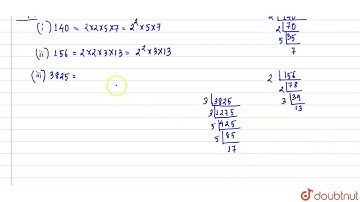 (i) 140 = 2x2x5x7 = 2^2 x5x7
(ii) 156 = 2x2x3x13 = 2^2 x3x13
(iii) 3825 =
2 140
2 70
5 35
7
2 156
2 78
3 39
13
3 3825
3 1275
5 425
5 85
17
doubtnut